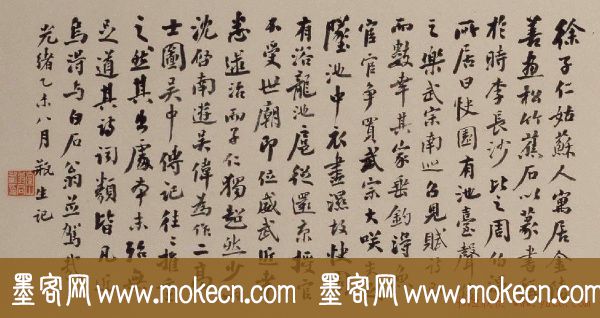 徐子仁姑蘇人寓居金
善畫松竹蕉石以篆書
於時李長沙比之周伯
所居曰快園有池臺聲
之樂武宗南巡召見賦詩
而數幸其家垂釣得魚
宦官争買武宗大咲
墮池中衣盡濕故快園
有浴龍池扈從還京授官
不受世廟即位威武近者
悉逮治而子仁獨超然少
沈啓南遊吴偉為作二高
士圖吴中傳記往々推
之然其出處本末殆無
足道其詩詞類皆凡近
烏得与白石翁並駕哉
光緒乙未八月瓶生記
墨客网 www.mokecn.com 墨客网 www.mokecn.com